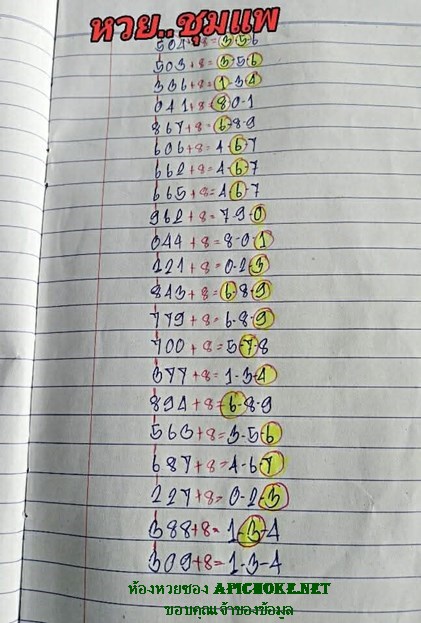 หวย..ชุมแพ
504+8=3-5-6
503+8=3-5-6
336+8=1-3-4
041+8=8-0-1
867+8=6-8-9
606+8=4-6-7
662+8=4-6-7
665+8=4-6-7
962+8=7-9-0
044+8=8-0-1
121+8=0-2-3
843+8=6-8-9
779+8=6-8-9
700+8=5-7-8
377+8=1-3-4
894+8=6-8-9
563+8=3-5-6
687+8=4-6-7
227+8=0-2-3
388+8=1-3-4
309+8=1-3-4
ห้องหวยซอง APICHOKE.NET
ขอบคุณเจ้าของข้อมูล